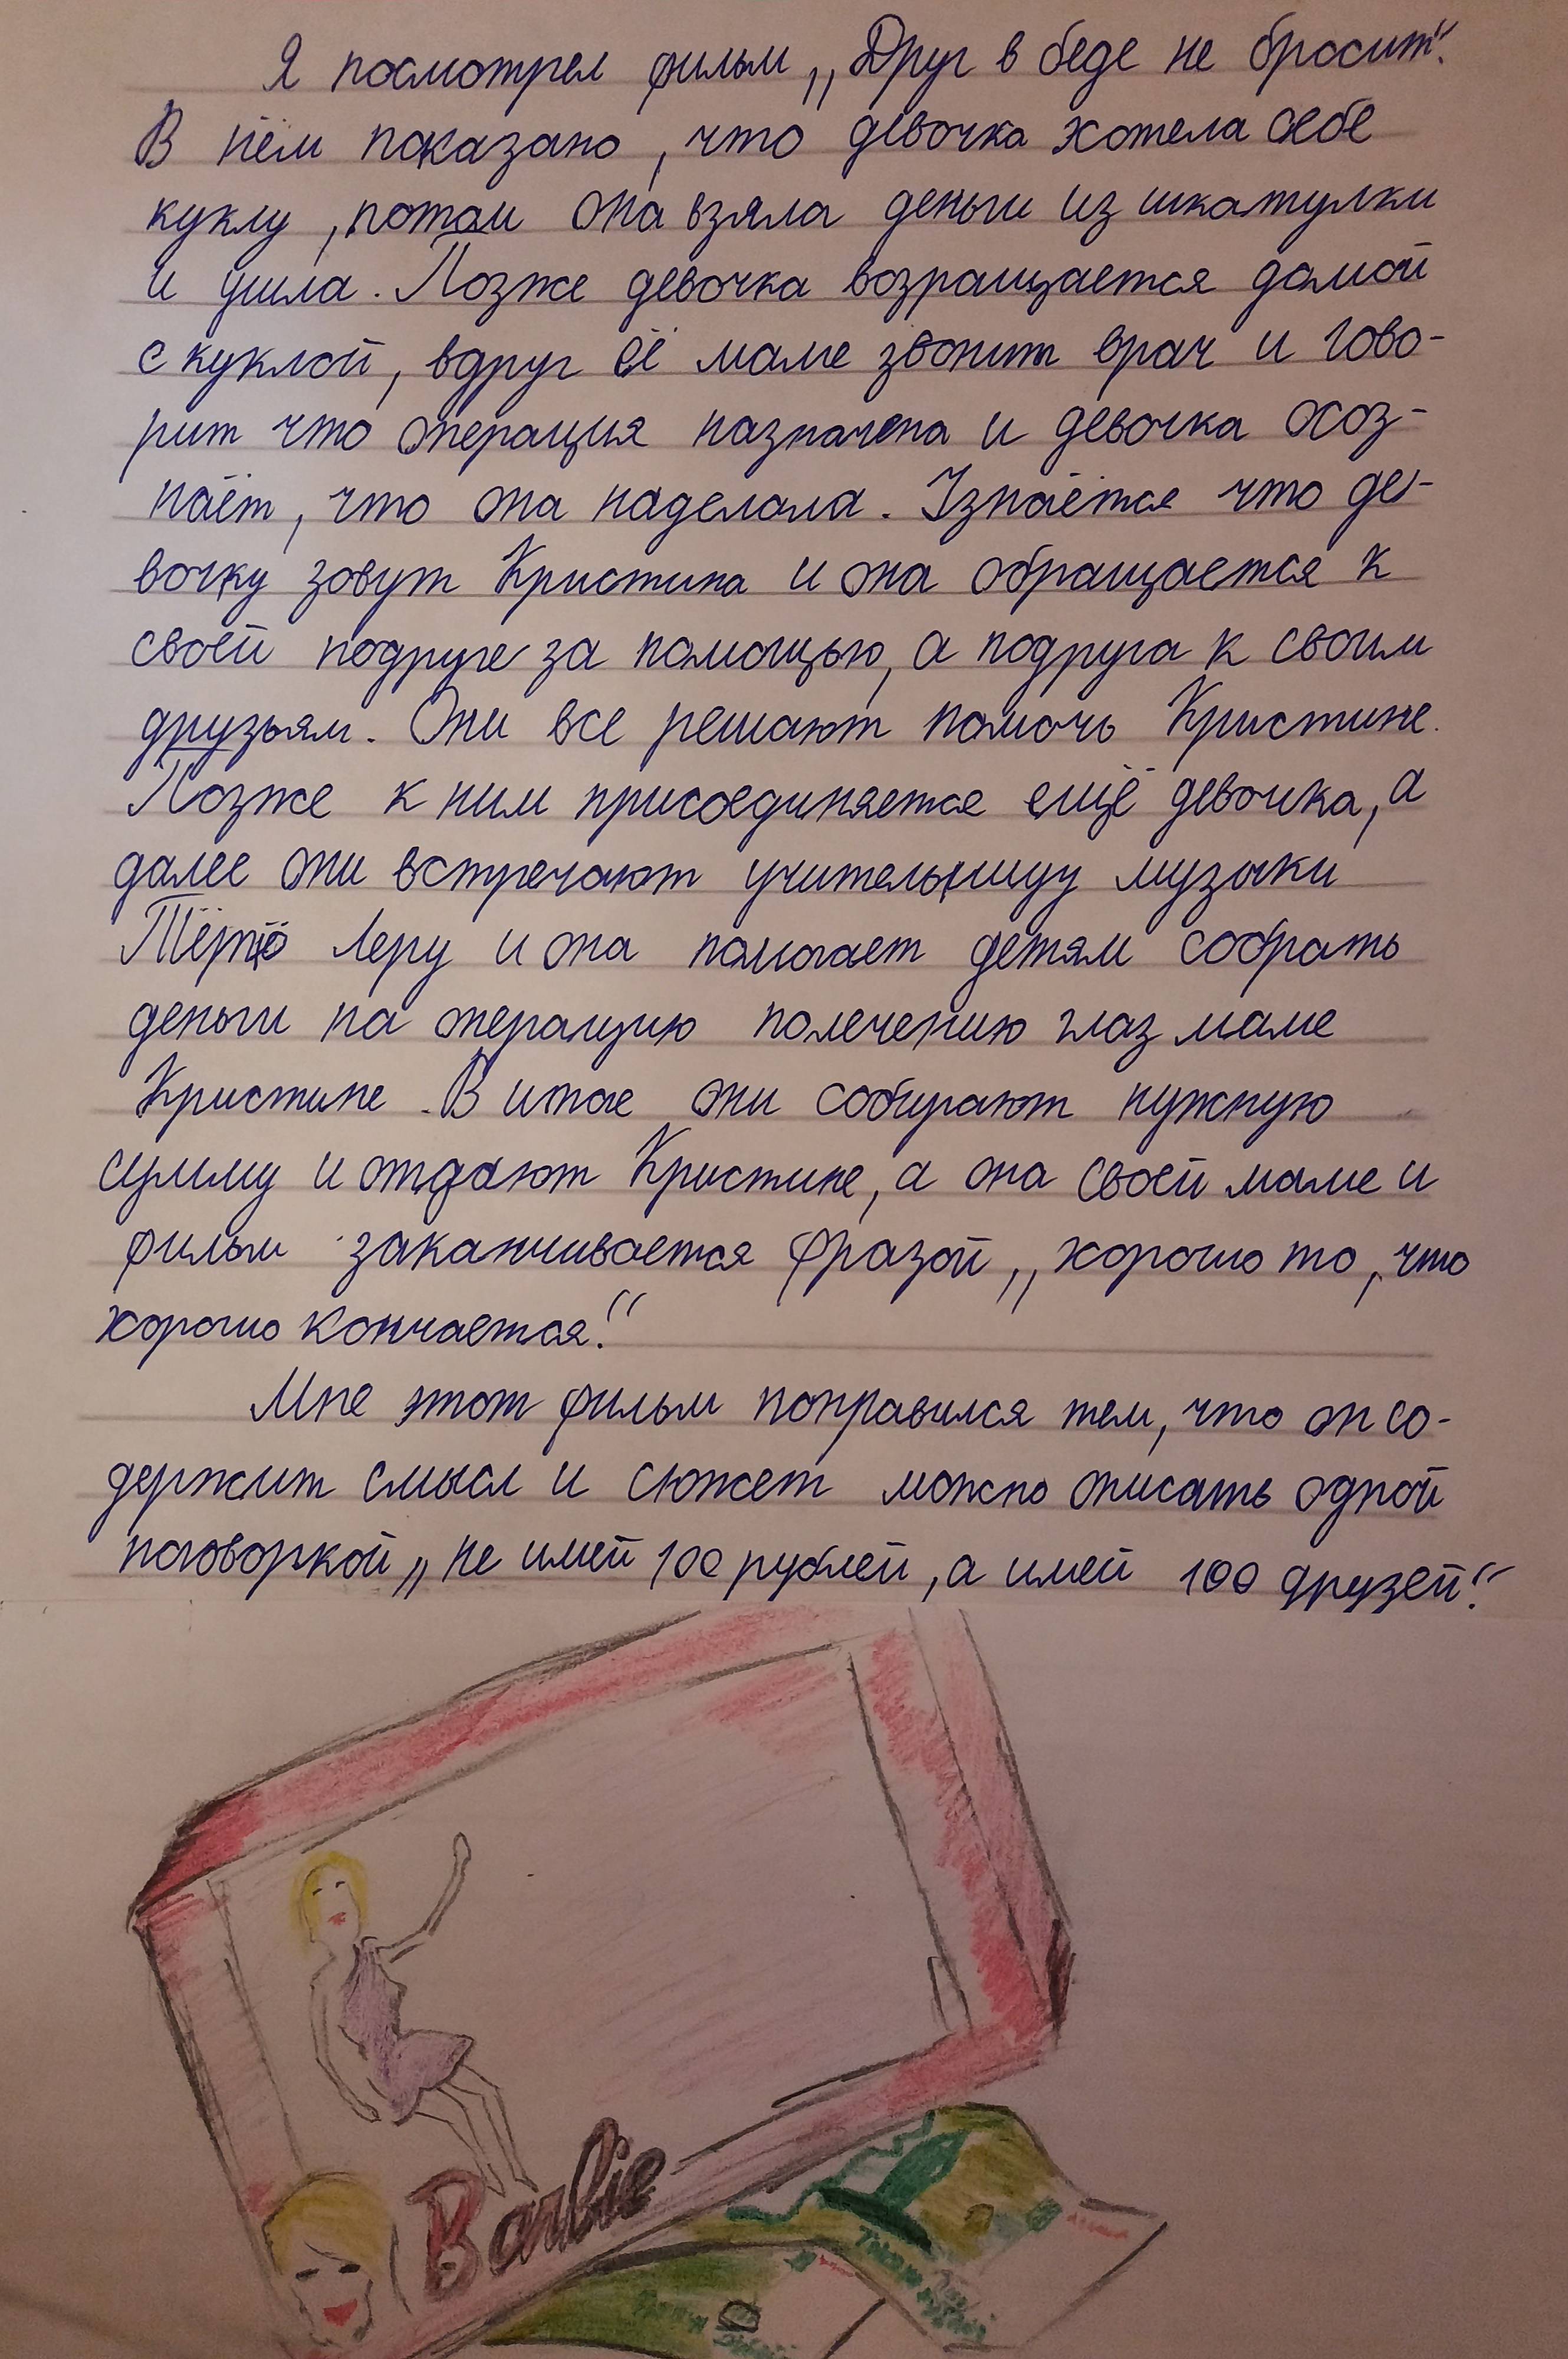 Я посмотрел фильм „Друг в беде не бросит".
В нём показано, что девочка хотела себе
куклу, потом она взяла деньги из шкатулки
и ушла. Позже девочка возращается домой
с куклой, вдруг её маме звонит врач и гово-
рит что операция назначена и девочка осоз-
наёт, что она наделала. Узнаётся что де-
вочку зовут Кристина и она обращается к
своей подруге за помощью, а подруга к своим
друзьям. Они все решают помочь Кристине.
Позже к ним присоединяется ещё девочка, а
далее они встречают учительницу музыки
Леру и она помогает детям собрать
деньги на операцию полечению глаз маме
Кристине. В итоге они собирают нужную
сумму и отдают Кристине, а она своей маме и
фильм заканчивается фразой „хорошо то, что
хорошо кончается!"
Мне этот фильм понравился тем, что он со-
держит смысл и сюжет можно описать одной
поговоркой „не имей 100 рублей, а имей 100 друзей!"
Barbie